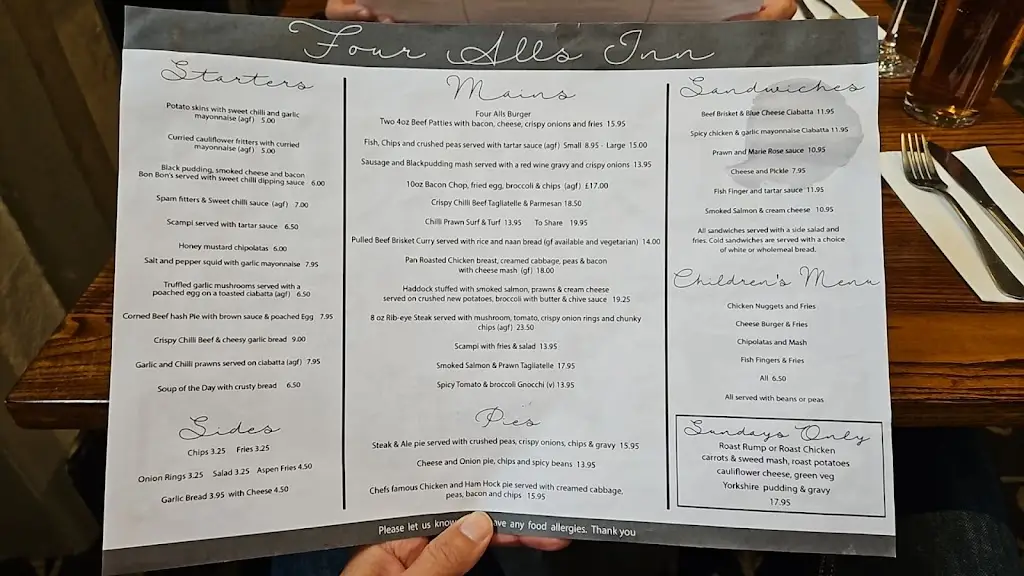 Four Alls Inn
Starters
Potato skins with sweet chilli and garlic
mayonnaise (agf) 5.00
Curried cauliflower fritters with curried
mayonnaise (agf) 5.00
Black pudding, smoked cheese and bacon
Bon Bon's served with sweet chilli dipping sauce 6.00
Spam fitters & Sweet chilli sauce (agf) 7.00
Scampi served with tartar sauce 6.50
Honey mustard chipolatas 6.00
Salt and pepper squid with garlic mayonnaise 7.95
Truffled garlic mushrooms served with a
poached egg on a toasted ciabatta (agf) 6.50
Corned Beef hash Pie with brown sauce & poached Egg 7.95
Crispy Chilli Beef & cheesy garlic bread 9.00
Garlic and Chilli prawns served on ciabatta (agf) 7.95
Soup of the Day with crusty bread 6.50
Sides
Chips 3.25 Fries 3.25
Onion Rings 3.25 Salad 3.25 Aspen Fries 4.50
Garlic Bread 3.95 with Cheese 4.50
Mains
Four Alls Burger
Two 4oz Beef Patties with bacon, cheese, crispy onions and fries 15.95
Fish, Chips and crushed peas served with tartar sauce (agf) Small 8.95 - Large 15.00
Sausage and Blackpudding mash served with a red wine gravy and crispy onions 13.95
10oz Bacon Chop, fried egg, broccoli & chips (agf) £17.00
Crispy Chilli Beef Tagliatelle & Parmesan 18.50
Chilli Prawn Surf & Turf 13.95 To Share 19.95
Pulled Beef Brisket Curry served with rice and naan bread (gf available and vegetarian) 14.00
Pan Roasted Chicken breast, creamed cabbage, peas & bacon
with cheese mash (gf) 18.00
Haddock stuffed with smoked salmon, prawns & cream cheese
served on crushed new potatoes, broccoli with butter & chive sauce 19.25
8 oz Rib-eye Steak served with mushroom, tomato, crispy onion rings and chunky
chips (agf) 23.50
Scampi with fries & salad 13.95
Smoked Salmon & Prawn Tagliatelle 17.95
Spicy Tomato & broccoli Gnocchi (v) 13.95
Pies
Steak & Ale pie served with crushed peas, crispy onions, chips & gravy 15.95
Cheese and Onion pie, chips and spicy beans 13.95
Chefs famous Chicken and Ham Hock pie served with creamed cabbage,
peas, bacon and chips 15.95
Sandwiches
Beef Brisket & Blue Cheese Ciabatta 11.95
Spicy chicken & garlic mayonnaise Ciabatta 11.95
Prawn and Marie Rose sauce 10.95
Cheese and Pickle 7.95
Fish Finger and tartar sauce 11.95
Smoked Salmon & cream cheese 10.95
All sandwiches served with a side salad and
fries. Cold sandwiches are served with a choice
of white or wholemeal bread.
Children's Menu
Chicken Nuggets and Fries
Cheese Burger & Fries
Chipolatas and Mash
Fish Fingers & Fries
All 6.50
All served with beans or peas
Sundays Only
Roast Rump or Roast Chicken
carrots & sweed mash, roast potatoes
cauliflower cheese, green veg
Yorkshire pudding & gravy
17.95
Please let us know have any food allergies. Thank you